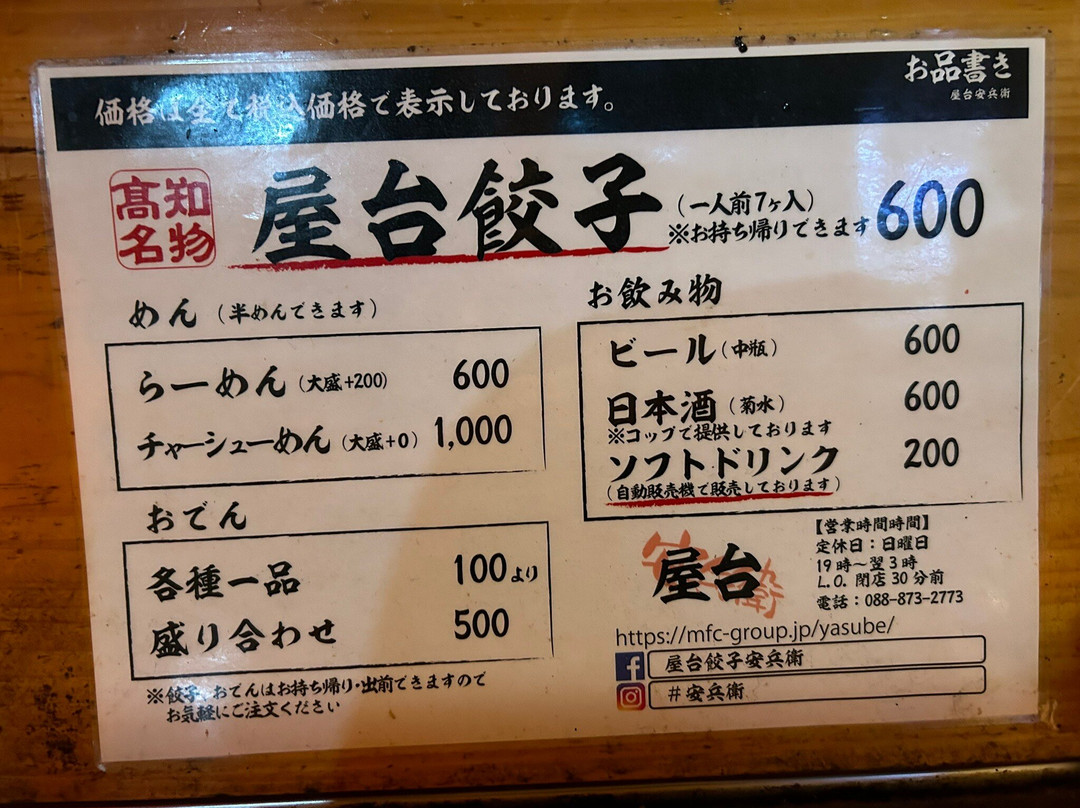 お品書き
屋台安兵衛
価格は全て税込価格で表示しております。
高知
名物
屋台餃子
(一人前7ヶ入)
※お持ち帰りできます
600
めん(半めんできます)
らーめん(大盛+200) 600
チャーシューめん(大盛+0) 1,000
おでん
各種一品 100より
盛り合わせ 500
※餃子、おでんはお持ち帰り・出前できますので
お気軽にご注文ください
お飲み物
ビール(中瓶) 600
日本酒(菊水) 600
※コップで提供しております
ソフトドリンク 200
(自動販売機で販売しております)
屋台
【営業時間時間】
定休日:日曜日
19時~翌3時
L.O. 閉店30分前
電話:088-873-2773
https://mfc-group.jp/yasube/
屋台餃子安兵衛
#安兵衛